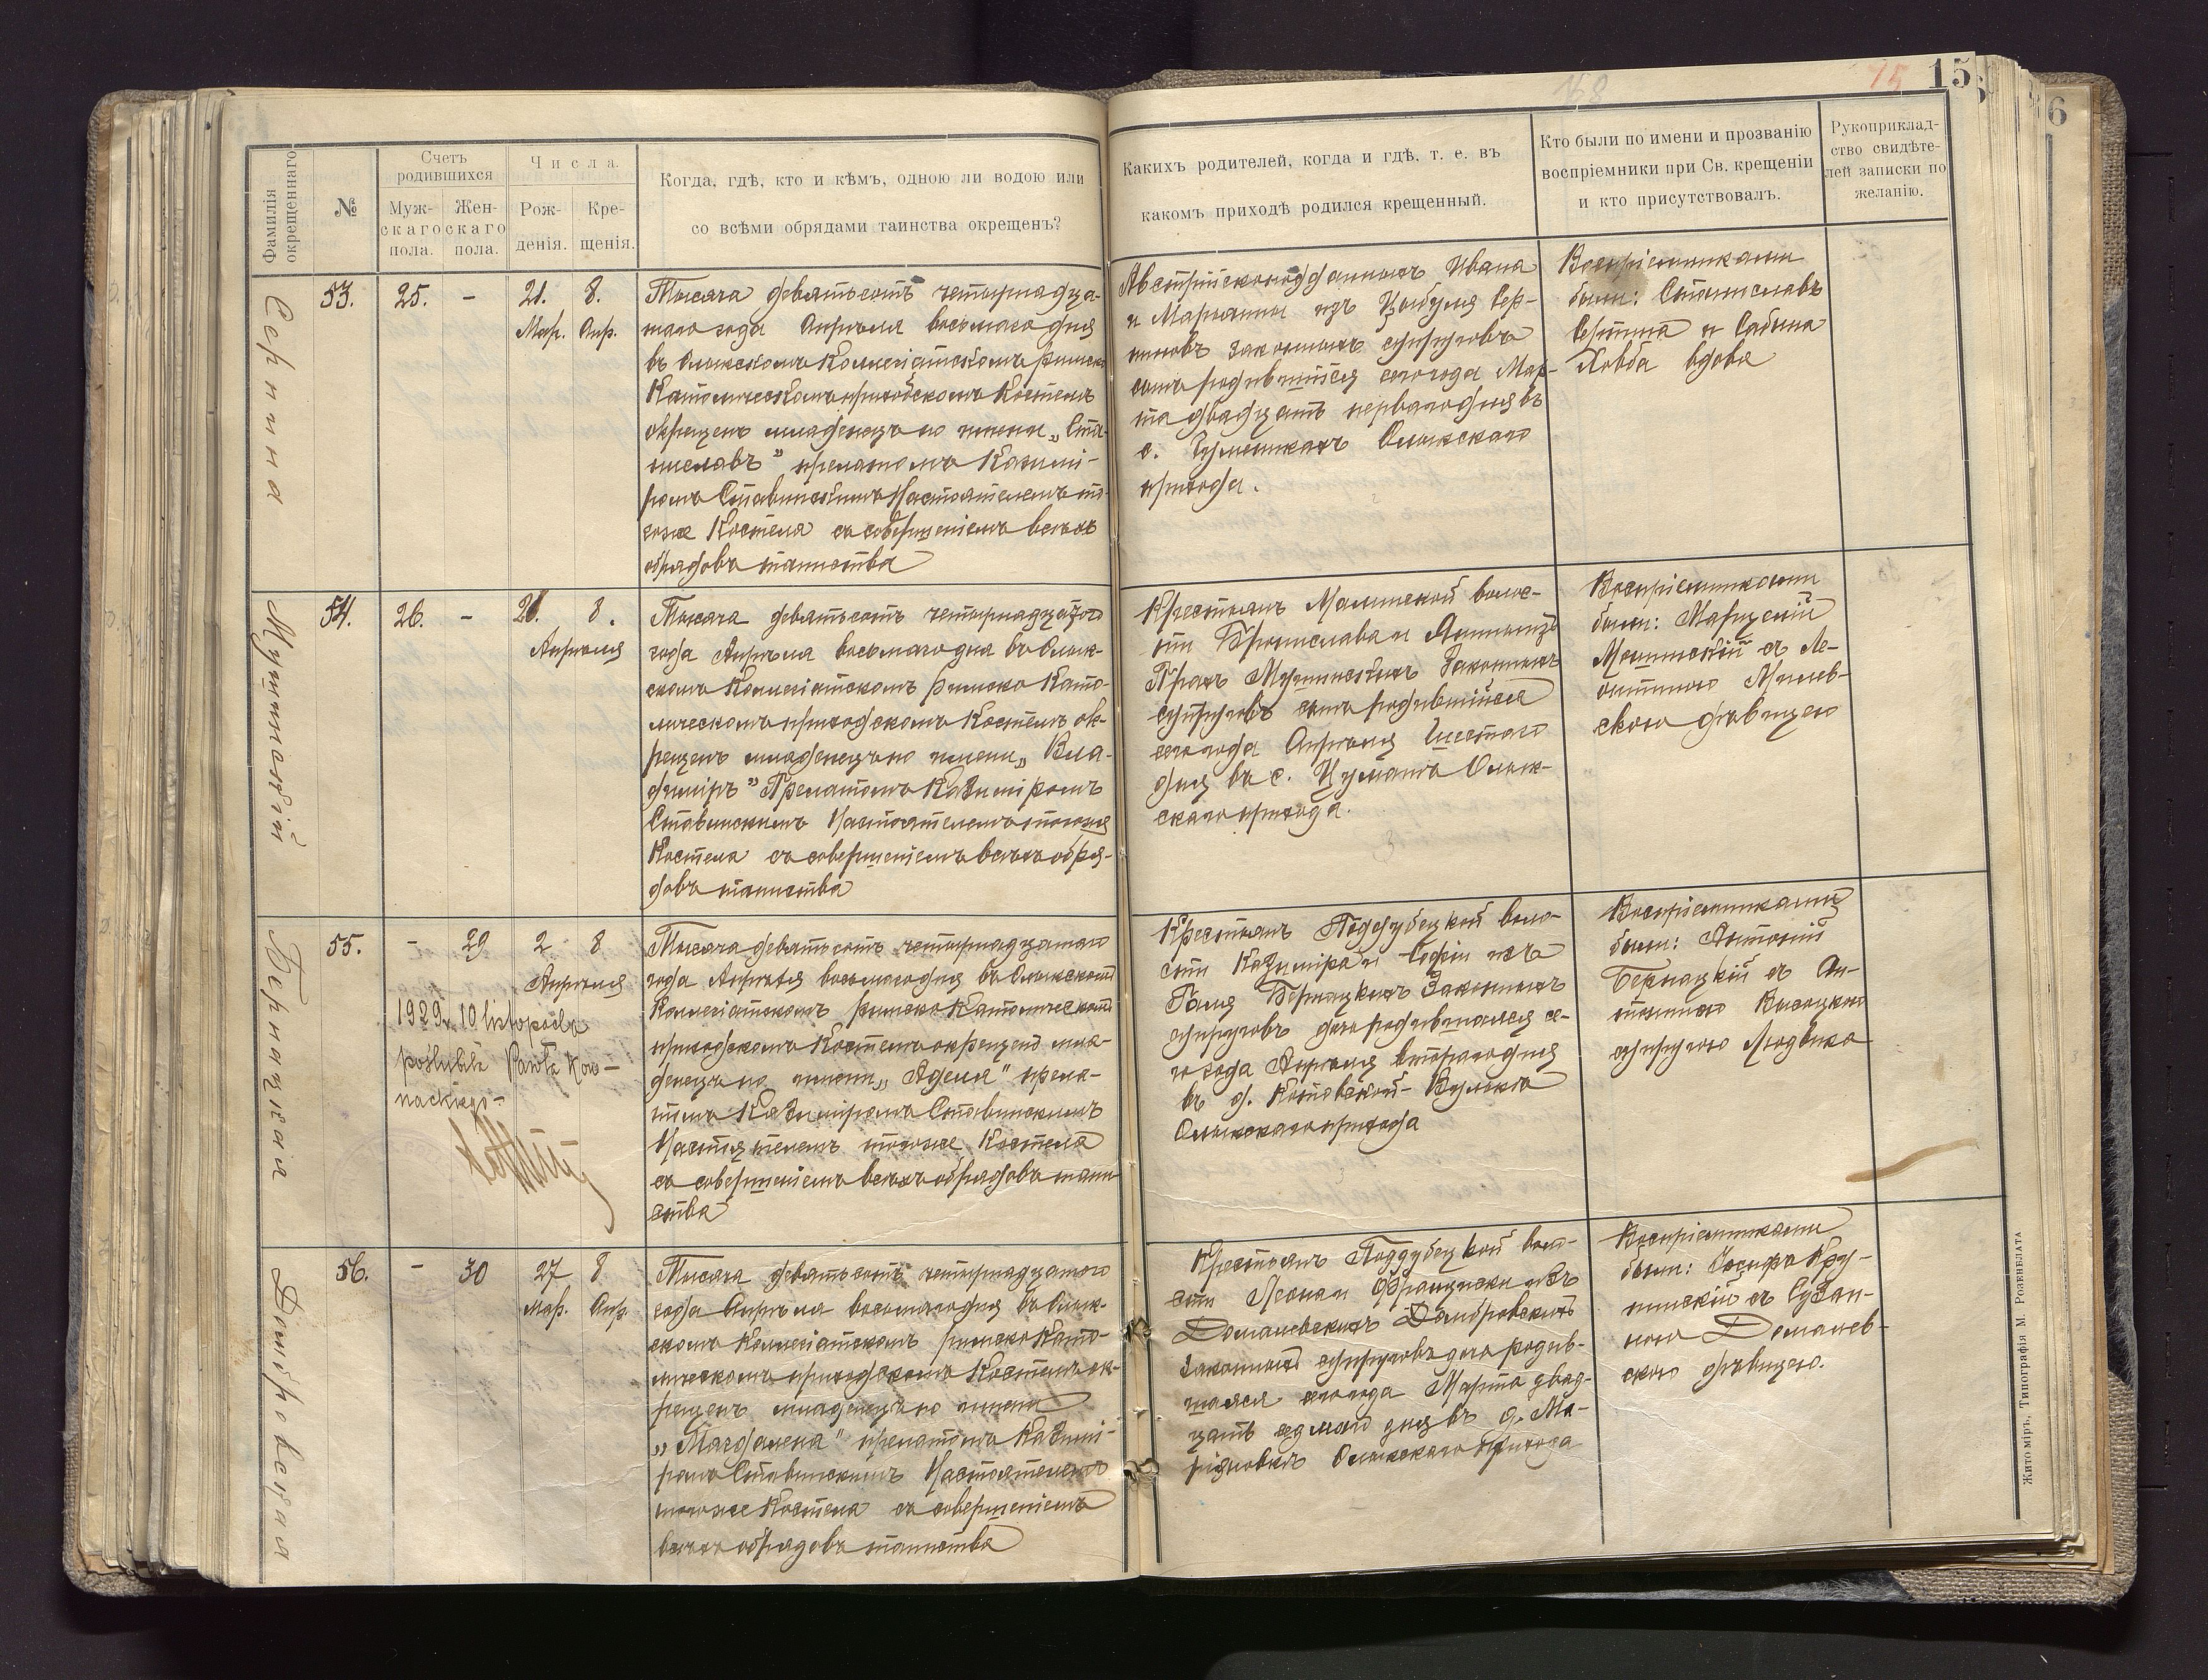 15
15
6
168
Фамилія окрещеннаго
№
Счетъ родившихся
Муж-скаго пола.
Жен-скаго пола.
Числа.
Рож-денія.
Кре-щенія.
Когда, гдѣ, кто и кѣмъ, одною ли водою или
со всѣми обрядами таинства окрещенъ?
Какихъ родителей, когда и гдѣ, т. е. въ
какомъ приходѣ родился крещенный.
Кто были по имени и прозванію
воспріемники при Св. крещеніи
и кто присутствовалъ.
Рукоприклад-
ство свидѣте-
лей записки по
желанію.
53.
25.
-
21.
8.
Мар.
Апр.
Тысяча девятьсотъ четырнадца-
таго года Апрѣля восьмаго дня
въ Олыкскомъ Коллегіатскомъ римско
Католическомъ приходскомъ Костелѣ
окрещенъ младенецъ по имени „Ста-
ниславъ" прелатомъ Казимі-
ромъ Ставинскимъ Настоятелемъ то-
гоже Костела съ совершеніемъ всѣхъ
обрядовъ таинства
Австрійскоподданныхъ Ивана
и Марьянны изъ
законныхъ супруговъ
сынъ родившійся сего года Мар-
та двадцать перваго дня въ
с. Олыкскаго
прихода.
Воспріемниками
были: Станиславъ
и Сабина
вдова
Мушинскій
54.
26.
-
8.
Апрѣля
Тысяча девятьсотъ четырнадцатого
года Апрѣля восьмаго дня въ Олык-
скомъ Коллегіатскомъ римско Като-
лическомъ приходскомъ Костелѣ ок-
рещенъ младенецъ по имени „Вла-
диміръ" Прелатомъ Казиміромъ
Ставинскимъ Настоятелемъ тогоже
Костела съ совершеніемъ всѣхъ обря-
довъ таинства
Крестьянъ Малинской волос-
ти Бронислава и Яннины изъ
Мушинскихъ Законныхъ
супруговъ сынъ родившійся
сего года Апрѣля шестого
дня въ с. Цумань Олык-
скаго прихода.
Воспріемниками
были:
съ Ле-
Милев-
скою дѣвицею
Берницкая
55.
-
29
2
8
Апрѣля
1929 r. 10 listopada
poślubiła Pawła Kor-
nackiego-
Тысяча девятьсотъ четырнадцатаго
года Апрѣля восьмаго дня въ Олыкскомъ
Коллегіатскомъ римско Католическомъ
приходскомъ Костелѣ окрещенъ мла-
денецъ по имени „Адела" прела-
томъ Казиміромъ Ставинскимъ
Настоятелемъ тогоже Костела
съ совершеніемъ всѣхъ обрядовъ таин-
ства
Крестьянъ Поддубецкой воло-
сти Казиміра и Софіи изъ
Берницкихъ Законныхъ
супруговъ дочь родившаяся се-
го года Апрѣля втораго дня
въ д. Котовской-Вулькѣ
Олыкскаго прихода
Воспріемниками
были: Антоній
Берницкій съ Ан-
тониною Высоцкою
супругою Людвика
Домбровская
56.
-
30
27
8
Мар.
Апр.
Тысяча девятьсотъ четырнадцатого
года Апрѣля восьмаго дня въ Олык-
скомъ Коллегіатскомъ римско Като-
лическомъ приходскомъ Костелѣ ок-
рещенъ младенецъ по имени
„Магдалена" прелатомъ Казимі-
ромъ Ставинскимъ Настоятелемъ
тогоже Костела съ совершеніемъ
всѣхъ обрядовъ таинства
Крестьянъ Поддубецкой воло-
сти Леона и Францишки изъ
Домалевскихъ Домбровскихъ
законныхъ супруговъ дочь родив-
шаяся сего года Марта двад-
цать седьмаго дня въ д. Ма-
ріяновкѣ Олыкскаго прихода
Воспріемниками
были: Іосифъ
съ Сузан-
ною Домалев-
скою дѣвицею.
Житоміръ, Типографія М. Розенблата